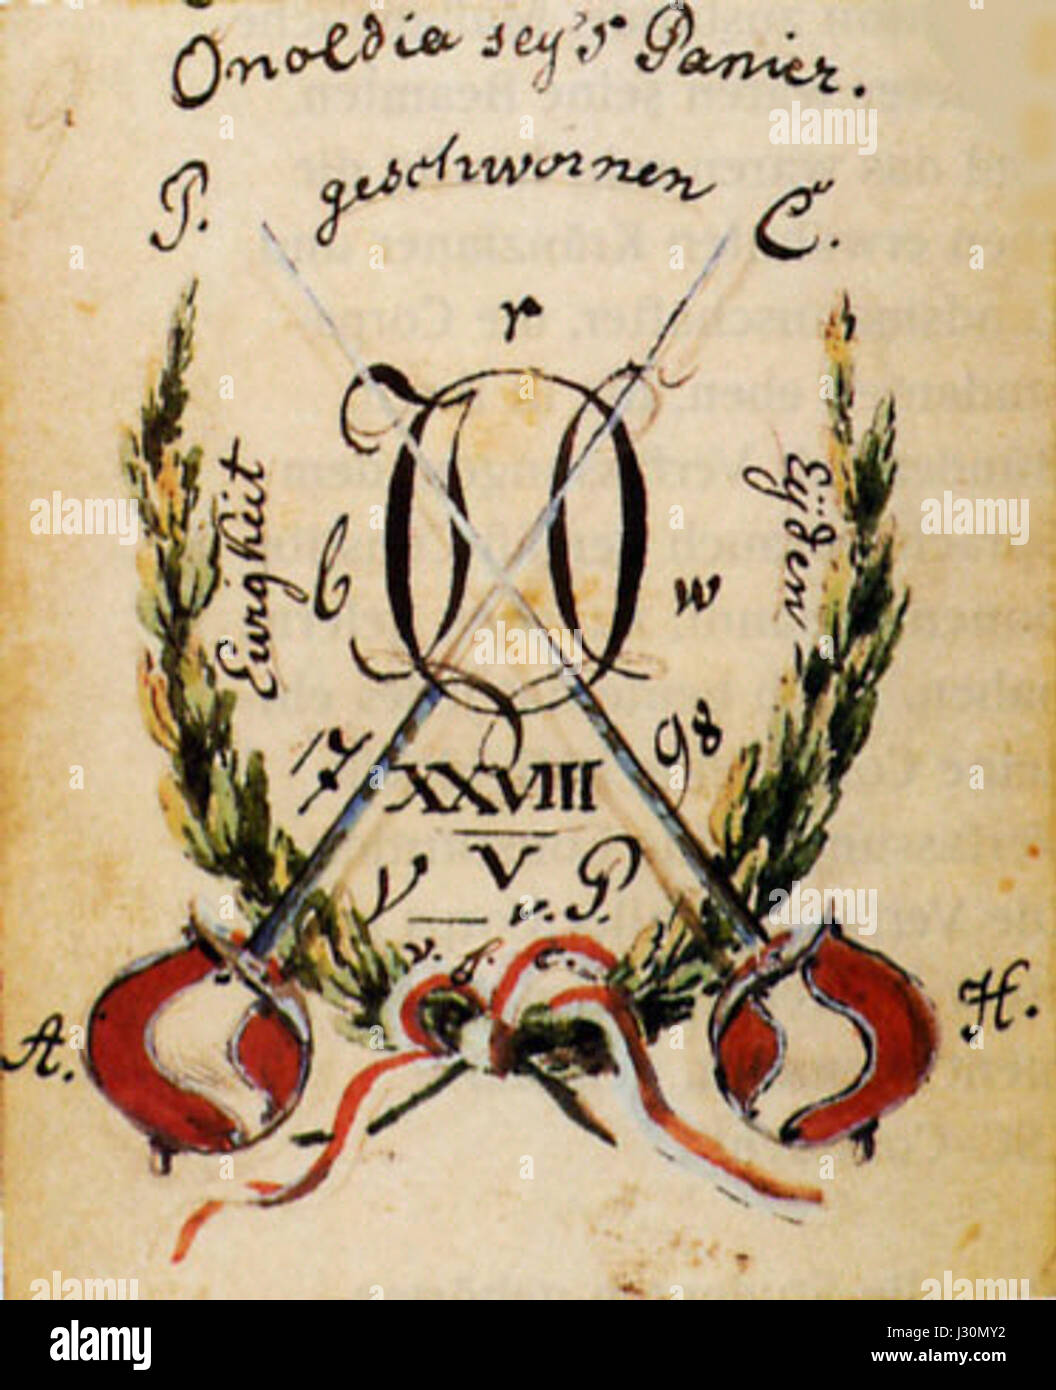 Onoldia sey's Panier.
P. geschwornen C.
r
Ewigkeit
b
w
Eyden
17 98
XXVIII
V
V v. P.
v. s. c.
A. H.
alamy
Image ID: J30MY2
www.alamy.com